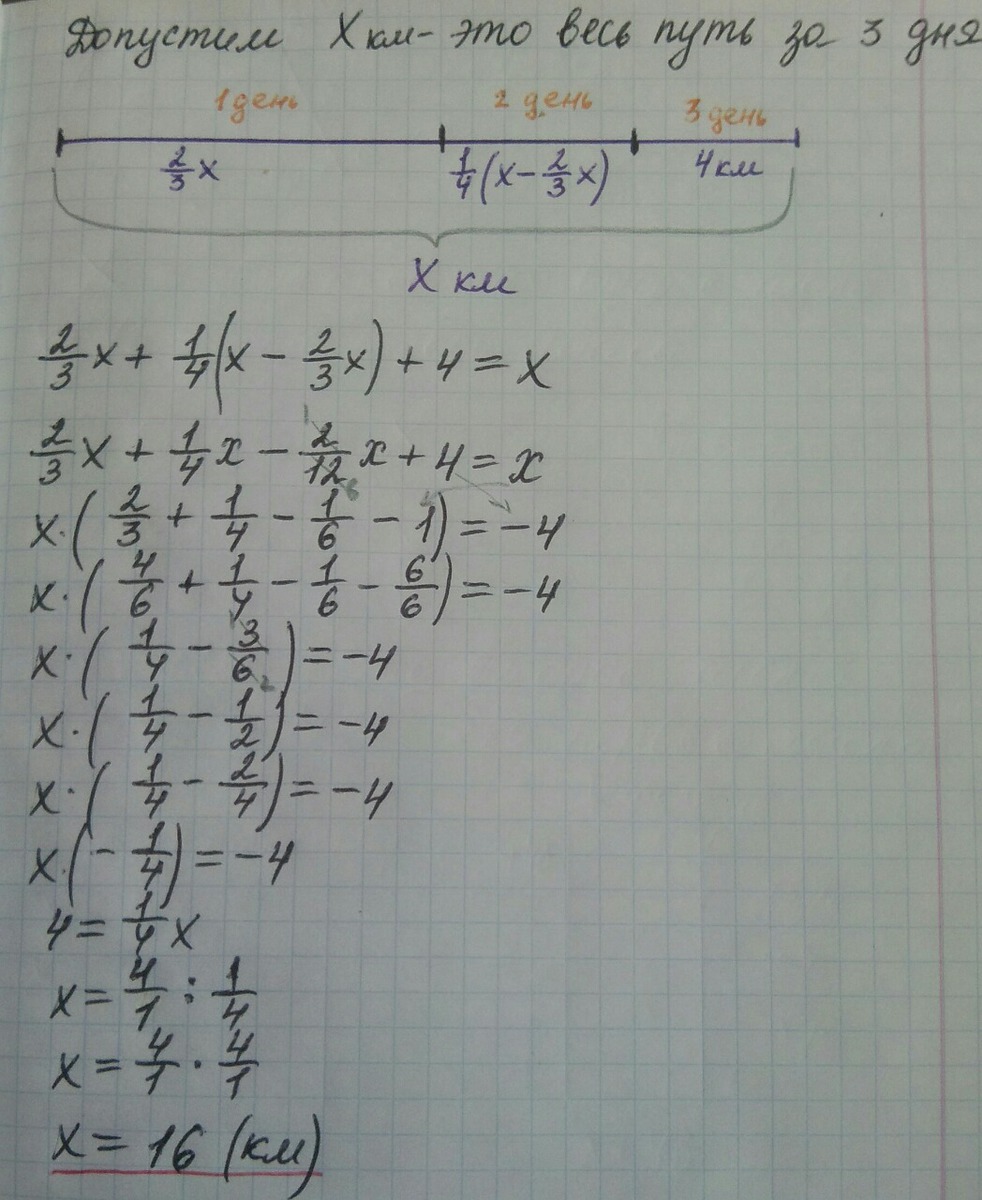 Допустим X км - это весь путь за 3 дня
1 день 2 день 3 день
2/3 x 1/4 (x - 2/3 x) 4 км
X км
2/3 x + 1/4 (x - 2/3 x) + 4 = x
2/3 x + 1/4 x - 2/12 x + 4 = x
x · (2/3 + 1/4 - 1/6 - 1) = -4
x · (4/6 + 1/4 - 1/6 - 6/6) = -4
x · (1/4 - 3/6) = -4
x · (1/4 - 1/2) = -4
x · (1/4 - 2/4) = -4
x · (- 1/4) = -4
4 = 1/4 x
x = 4/1 : 1/4
x = 4/1 · 4/1
x = 16 (км)